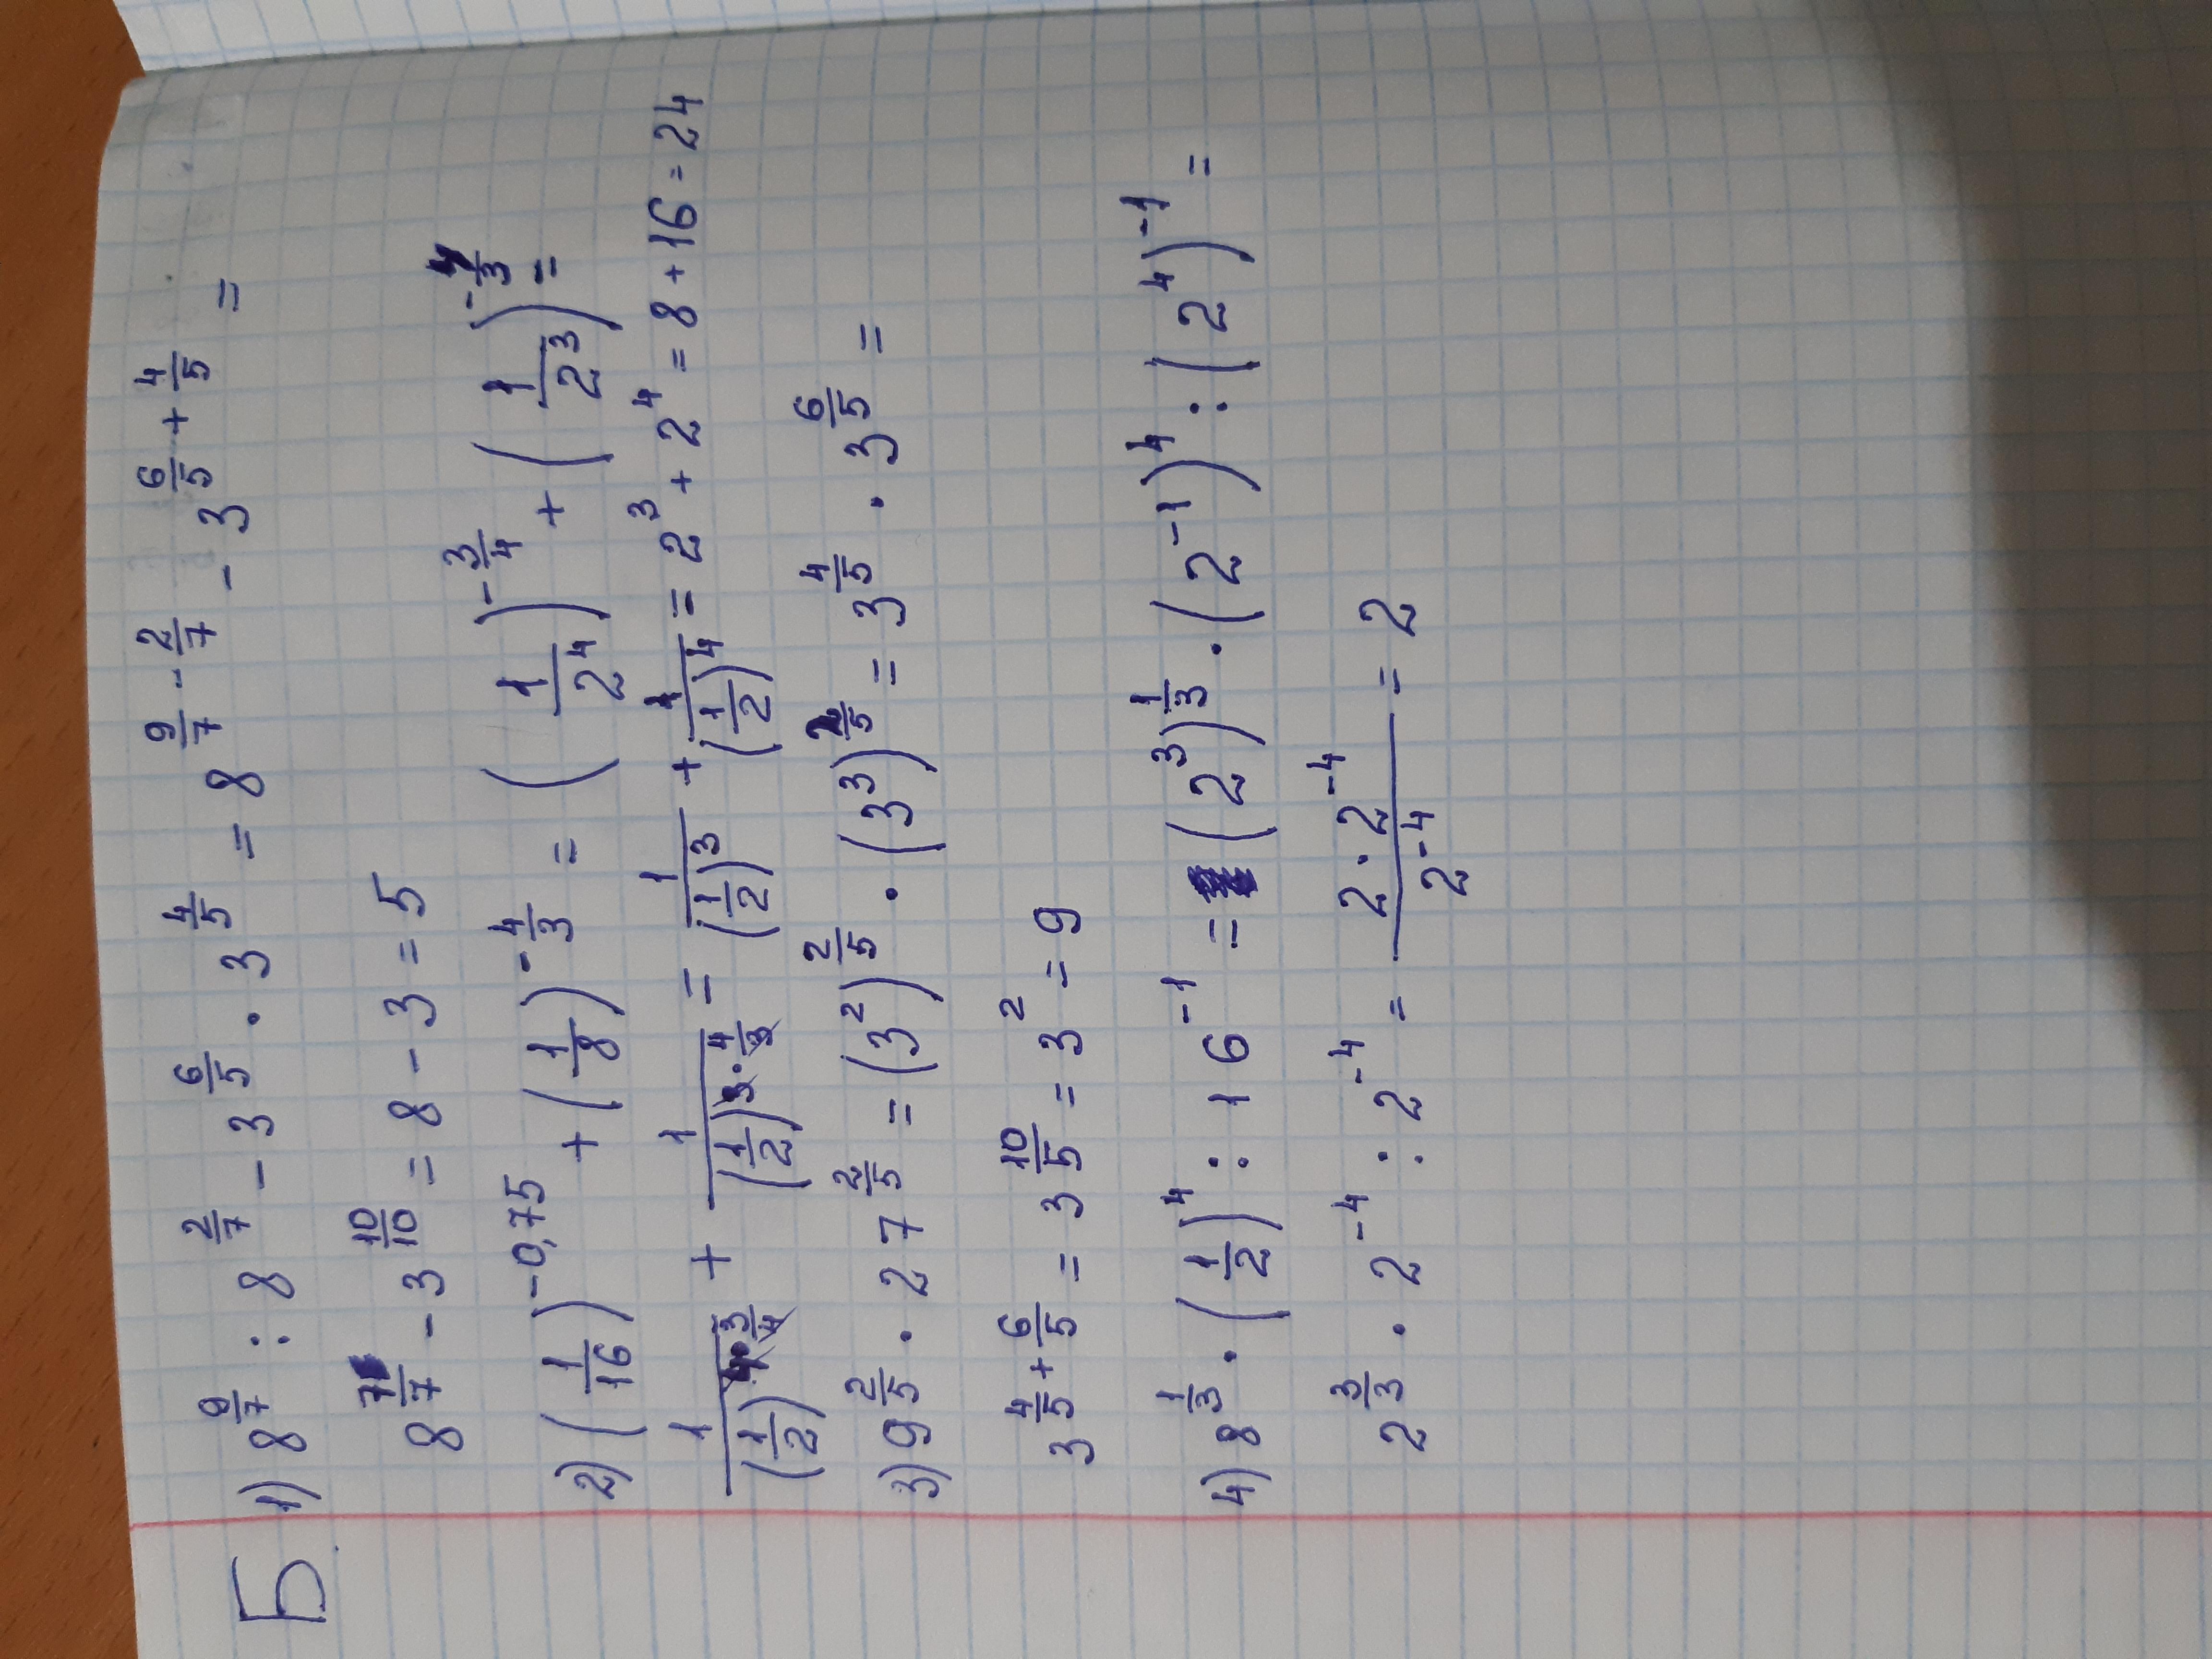 Б
1) 8^(9/7) : 8^(2/7) - 3^(6/5) · 3^(4/5) = 8^(9/7 - 2/7) - 3^(6/5 + 4/5) =
8^(7/7) - 3^(10/10) = 8 - 3 = 5
2) (1/16)^(-0,75) + (1/8)^(-4/3) = (1/2^4)^(-3/4) + (1/2^3)^(-4/3) =
1/(1/2)^(4·3/4) + 1/(1/2)^(3·4/3) = 1/(1/2)^3 + 1/(1/2)^4 = 2^3 + 2^4 = 8 + 16 = 24
3) 9^(2/5) · 27^(2/5) = (3^2)^(2/5) · (3^3)^(2/5) = 3^(4/5) · 3^(6/5) =
3^(4/5 + 6/5) = 3^(10/5) = 3^2 = 9
4) 8^(1/3) · (1/2)^4 : 16^(-1) = (2^3)^(1/3) · (2^(-1))^4 : (2^4)^(-1) =
2^(3/3) · 2^(-4) : 2^(-4) = (2 · 2^(-4))/(2^(-4)) = 2